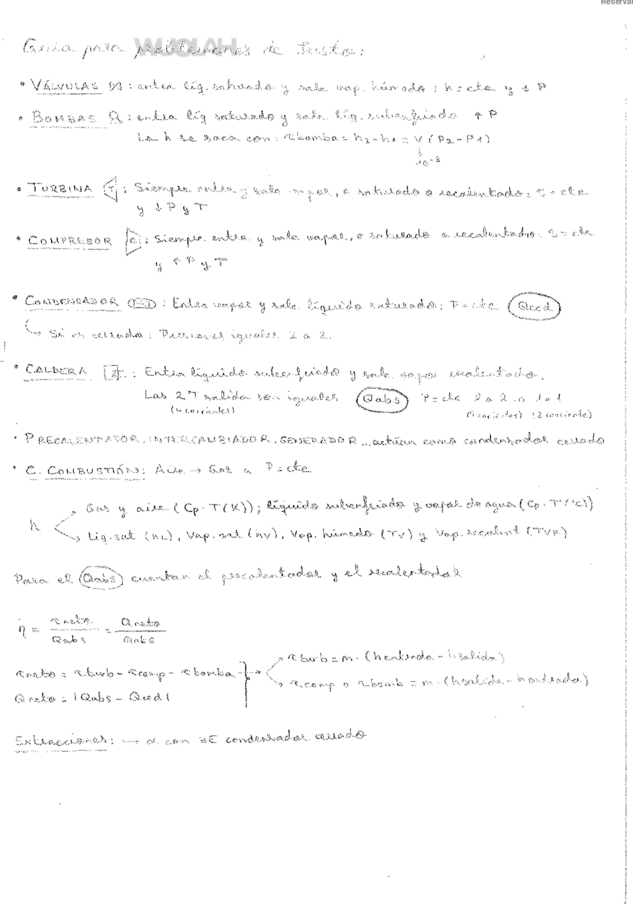 Reserva
Guía para problemas de Justo:
WUOLAH
• VÁLVULAS: entra líq. saturado y sale vap. húmedo: h = cte y ↓ P
• BOMBAS: entra líq saturado y sale líq. subenfriado ↑ P
La h se saca con: τbomba = h2 - h1 = v (P2 - P1)
↓
10⁻³
• TURBINA T: Siempre entra y sale vapor, o saturado o recalentado: s = cte
y ↓ P y T
• COMPRESOR C: Siempre entra y sale vapor, o saturado o recalentado: s = cte
y ↑ P y T
• CONDENSADOR: Entra vapor y sale líquido saturado: P = cte Qced
↳ Si es cerrado: Presiones iguales 2 a 2.
• CALDERA: Entra líquido subenfriado y sale vapor recalentado.
Las 2 T salida son iguales Qabs P = cte 2 a 2 o 1 a 1
(4 corrientes) (4 corrientes) (2 corriente)
• PRECALENTADOR, INTERCAMBIADOR, GENERADOR... actúan como condensador cerrado
• C. COMBUSTIÓN: Aire → Gas a P = cte
h
Gas y aire (Cp · T (K)); líquido subenfriado y vapor de agua (Cp · T (ºC))
Líq. sat (hL), Vap. sat (hV), Vap. húmedo (TV) y Vap. recalent (TVR)
Para el Qabs cuentan el precalentador y el recalentador
η = τneto / Qabs = Qneto / Qabs
τneto = τturb - τcomp - τbomba
Qneto = |Qabs - Qced|
→ τturb = m · (hentrada - hsalida)
→ τcomp o τbomb = m · (hsalida - hentrada)
Extracciones: → α con BE condensador cerrado